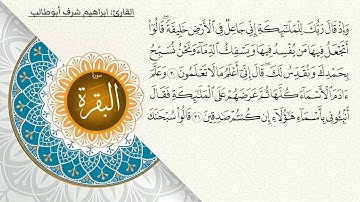 القارئ: ابراهيم شرف أبوطالب
سورة
البقرة
وَإِذْ قَالَ رَبُّكَ لِلْمَلَٰٓئِكَةِ إِنِّى جَاعِلٌ فِى ٱلْأَرْضِ خَلِيفَةً ۖ قَالُوٓا۟
أَتَجْعَلُ فِيهَا مَن يُفْسِدُ فِيهَا وَيَسْفِكُ ٱلدِّمَآءَ وَنَحْنُ نُسَبِّحُ
بِحَمْدِكَ وَنُقَدِّسُ لَكَ ۖ قَالَ إِنِّىٓ أَعْلَمُ مَا لَا تَعْلَمُونَ ٣٠ وَعَلَّمَ
ءَادَمَ ٱلْأَسْمَآءَ كُلَّهَا ثُمَّ عَرَضَهُمْ عَلَى ٱلْمَلَٰٓئِكَةِ فَقَالَ
أَنۢبِـُٔونِى بِأَسْمَآءِ هَٰٓؤُلَآءِ إِن كُنتُمْ صَٰدِقِينَ ٣١ قَالُوا۟ سُبْحَٰنَكَ